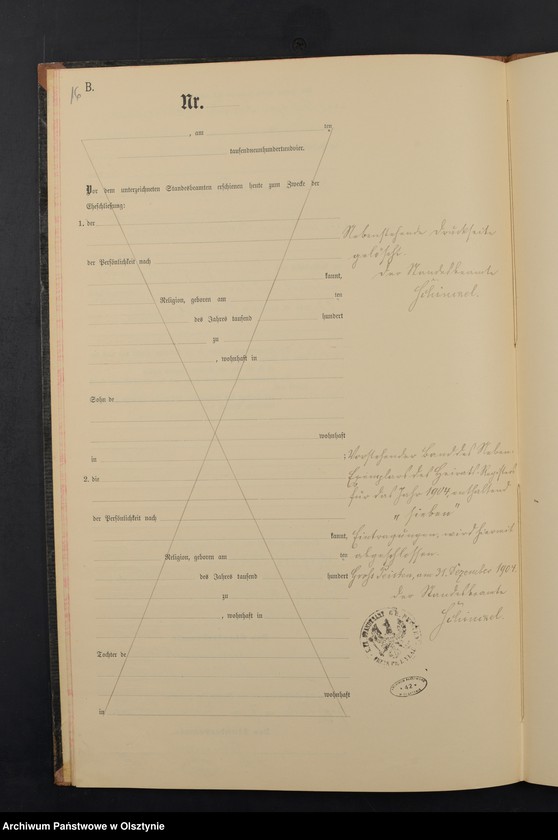 B.
Nr.
, am ten
tausendneunhundertundvier.
Vor dem unterzeichneten Standesbeamten erschienen heute zum Zwecke der
Eheschließung:
1. der
der Persönlichkeit nach
kannt,
Religion, geboren am ten
des Jahres tausend hundert
zu
, wohnhaft in
Sohn de
wohnhaft
in
2. die
der Persönlichkeit nach
kannt,
Religion, geboren am ten
des Jahres tausend hundert
zu
, wohnhaft in
Tochter de
wohnhaft
in
Nebenstehende Druckseite
gelöscht
Der Standesbeamte
Vorstehender Band des Neben-
Exemplars des Heirats-Registers
für das Jahr 1904, enthaltend
"sieben"
Eintragungen, wird hiermit
abgeschlossen.
am 31. Dezember 1904.
Der Standesbeamte
42
Archiwum Państwowe w Olsztynie